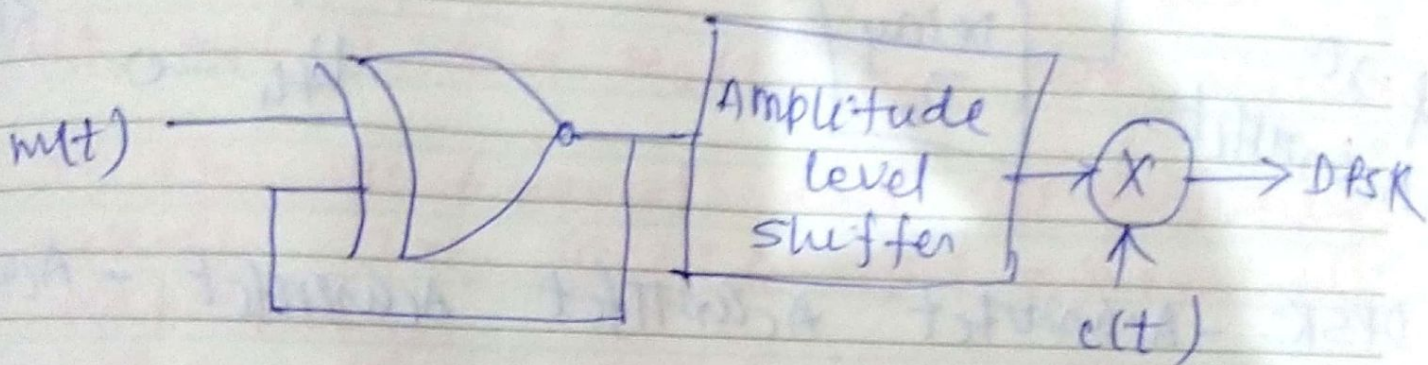 m(t)
Amplitude
level
shiffer
X
DPSK
c(t)